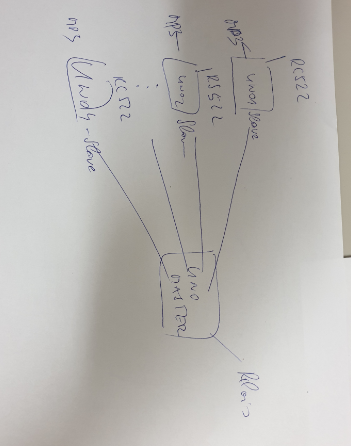 RC522
MP3
UNO1
slave
RC522
MP3
UNO2
slave
RC522
MP3
slave
UNO
MASTER